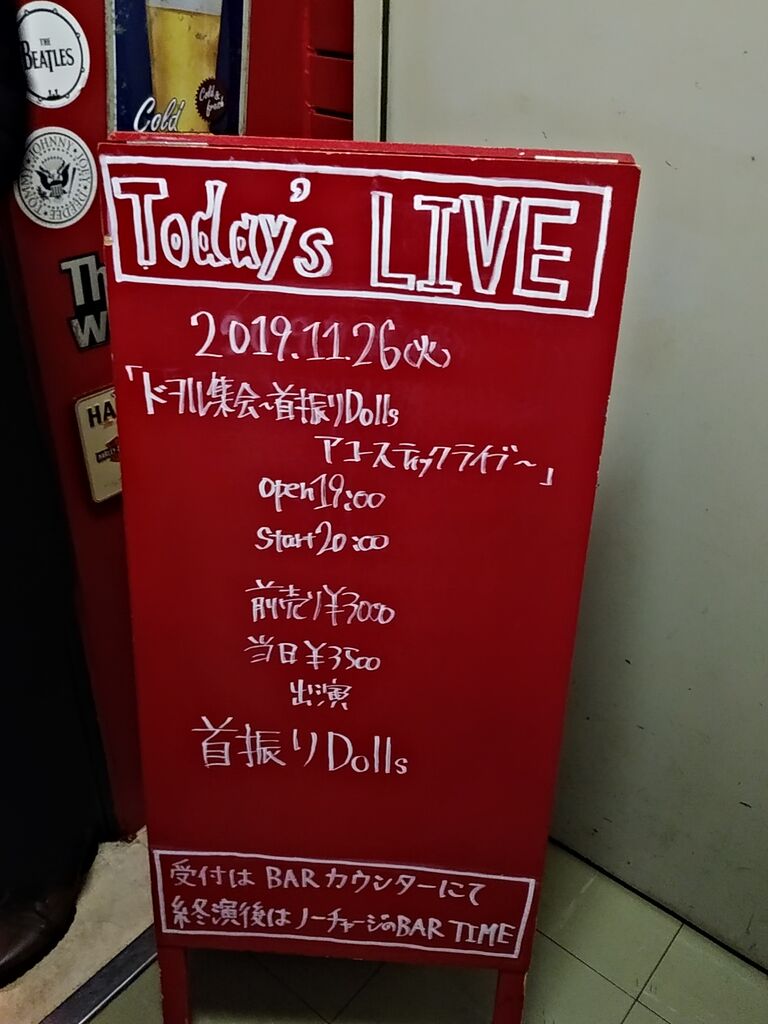 THE
BEATLES
JOHNNY
Cold
Cold &
fresh
Th
W
HA
Today's LIVE
2019.11.26(火)
「ドヲル集会〜首振りDolls
アコースティックライブ〜」
open19:00
start20:00
前売り¥3000
当日¥3500
出演
首振りDolls
受付は BARカウンターにて
終演後はノーチャージのBAR TIME